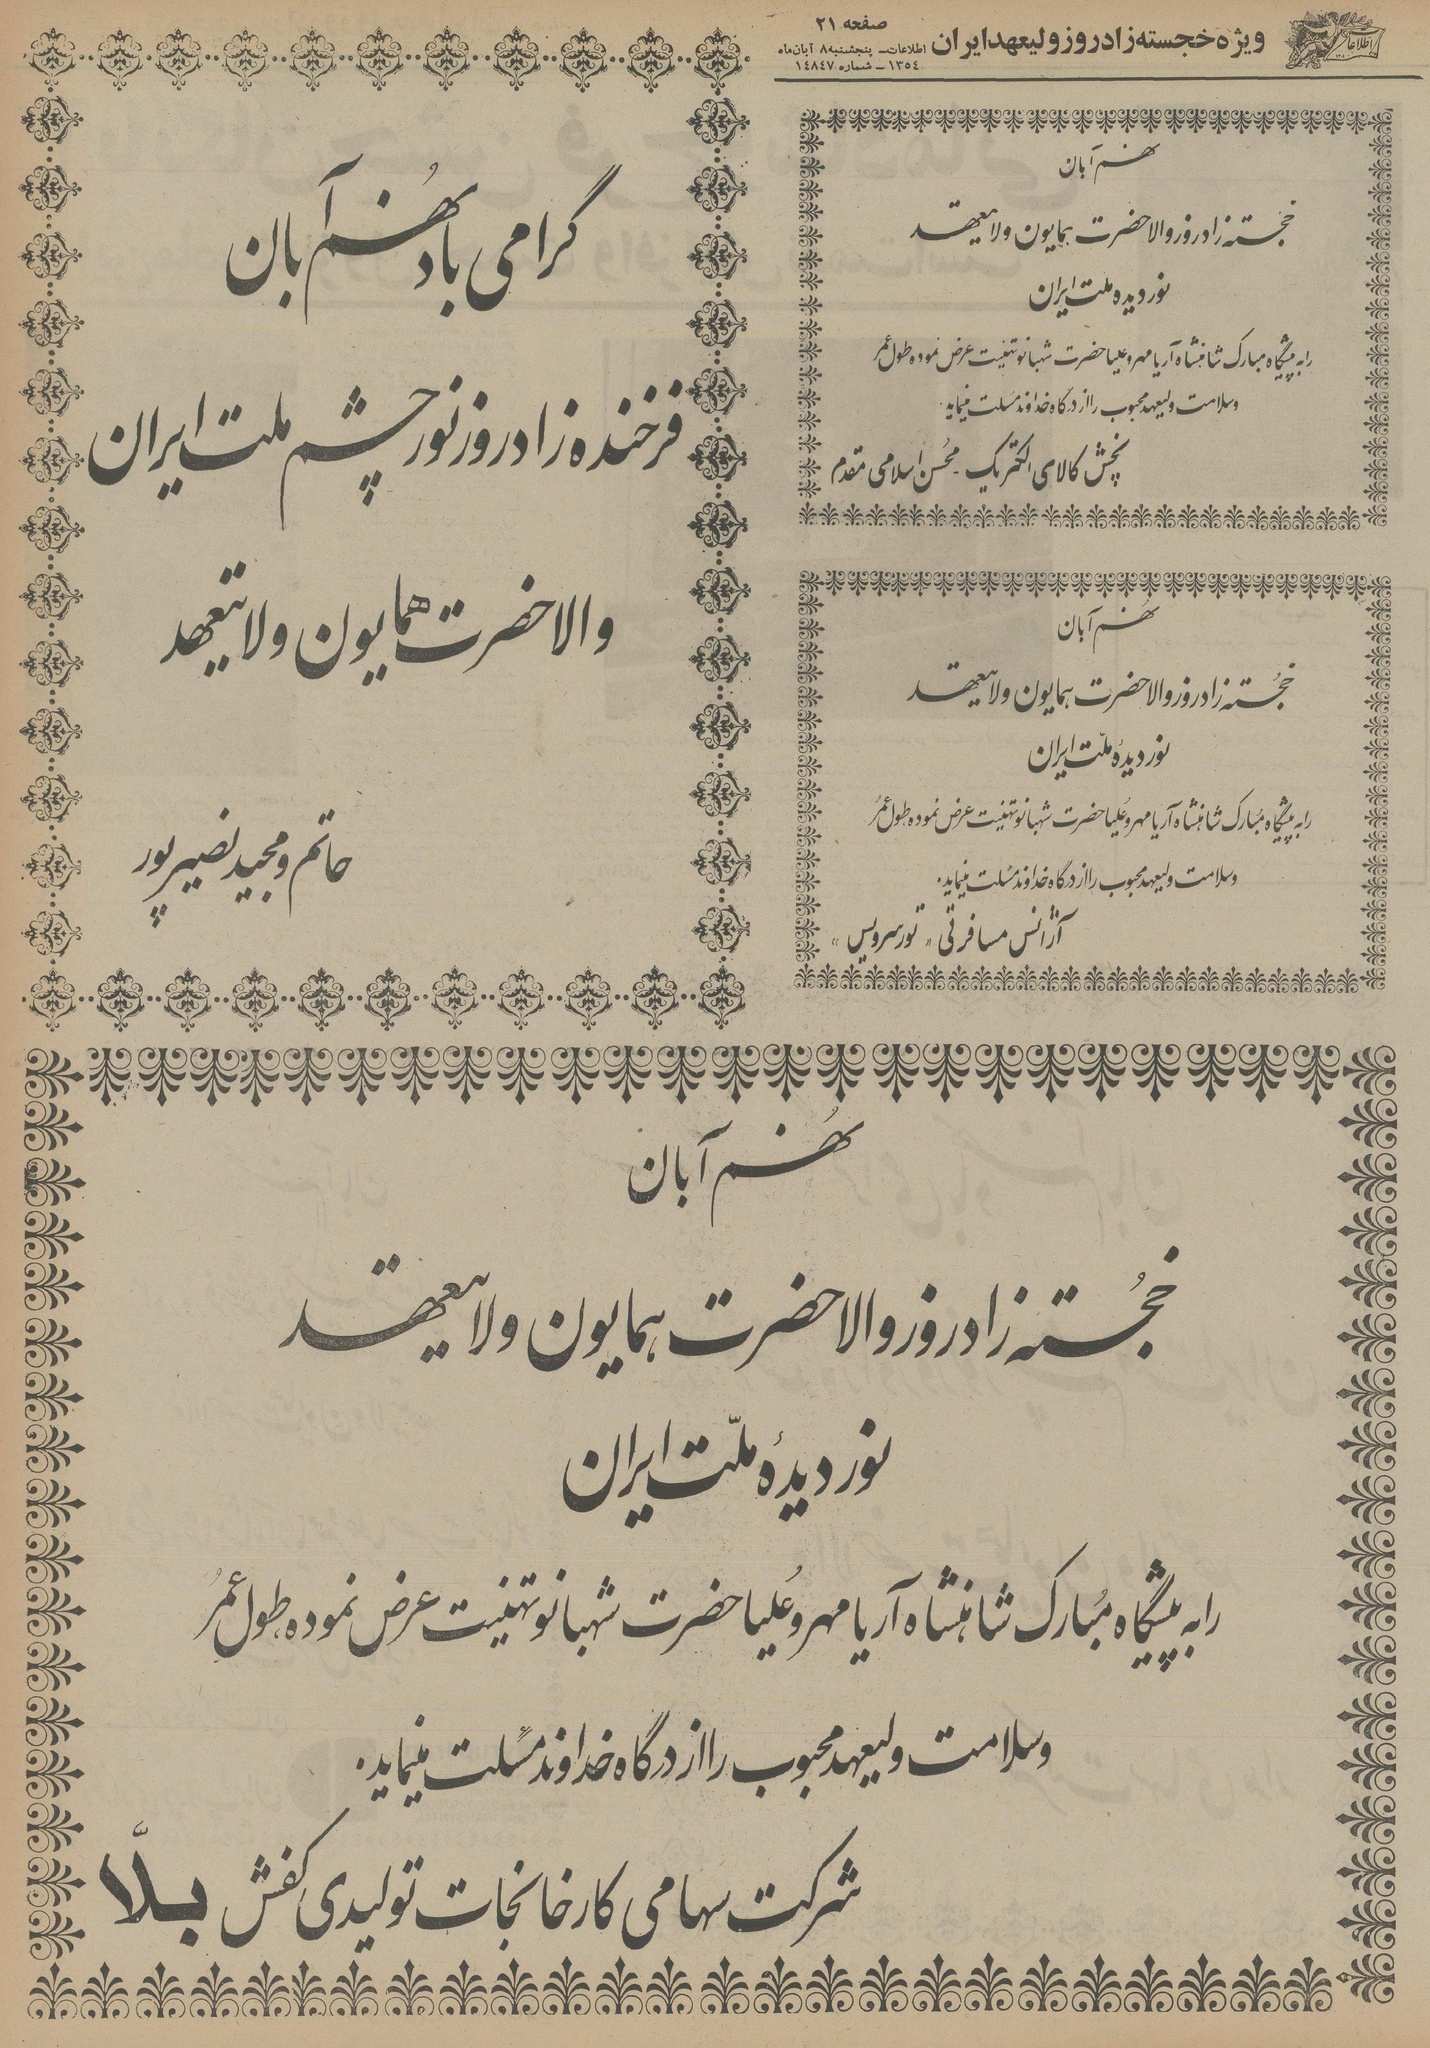 اطلاعات
ویژه خجسته زادروز ولیعهد ایران
صفحه ۲۱
اطلاعات ـ پنجشنبه ۸ آبان ماه
۱۳۵۴ ـ شماره ۱۴۸۴۷
نهم آبان
خجسته زادروز والاحضرت همایون ولایتعهد
نور دیده ملت ایران
را به پیشگاه مبارک شاهنشاه آریامهر و علیاحضرت شهبانو تهنیت عرض نموده طول عمر
و سلامت ولیعهد محبوب را از درگاه خداوند مسئلت مینماید.
پخش کالای الکتریک ـ محسن اسلامی مقدم
نهم آبان
خجسته زادروز والاحضرت همایون ولایتعهد
نور دیدهٔ ملّت ایران
را به پیشگاه مبارک شاهنشاه آریامهر و علیاحضرت شهبانو تهنیت عرض نموده طول عمر
و سلامت ولیعهد محبوب را از درگاه خداوند مسئلت مینماید.
آژانس مسافرتی «تورسرویس»
گرامی باد نهم آبان
فرخنده زادروز نور چشم ملت ایران
والاحضرت همایون ولایتعهد
حاتم و مجید نصیرپور
نهم آبان
خجسته زادروز والاحضرت همایون ولایتعهد
نور دیدهٔ ملّت ایران
را به پیشگاه مبارک شاهنشاه آریامهر و علیاحضرت شهبانو تهنیت عرض نموده طول عمر
و سلامت ولیعهد محبوب را از درگاه خداوند مسئلت مینماید.
شرکت سهامی کارخانجات تولیدی کفش بلّا